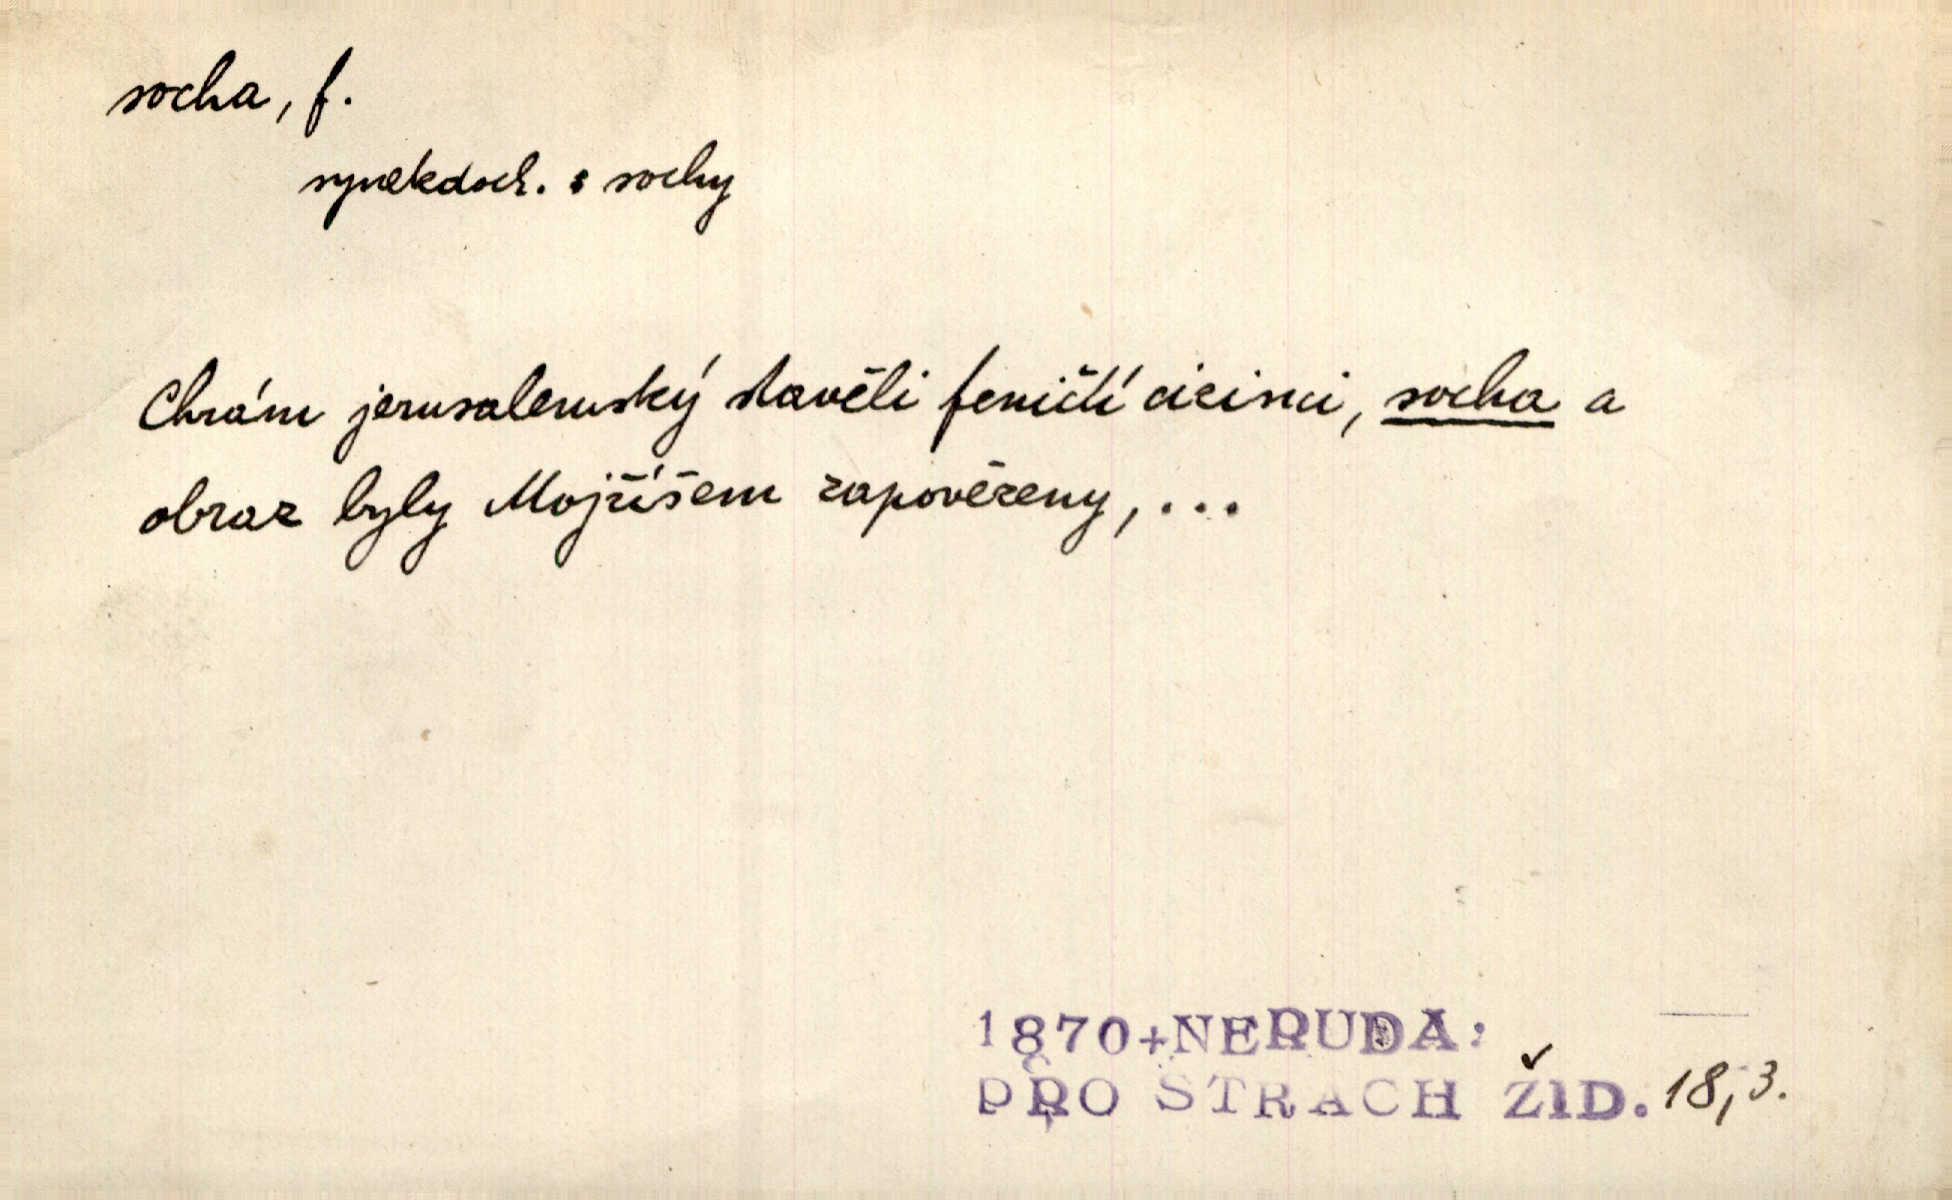 socha, f.
synekdoch. : sochy
Chrám jerusalemský stavěli feničtí cizinci, socha a
obraz byly Mojžíšem zapovězeny, ...
1870+NERUDA:
PRO STRACH ŽID. 18,3.